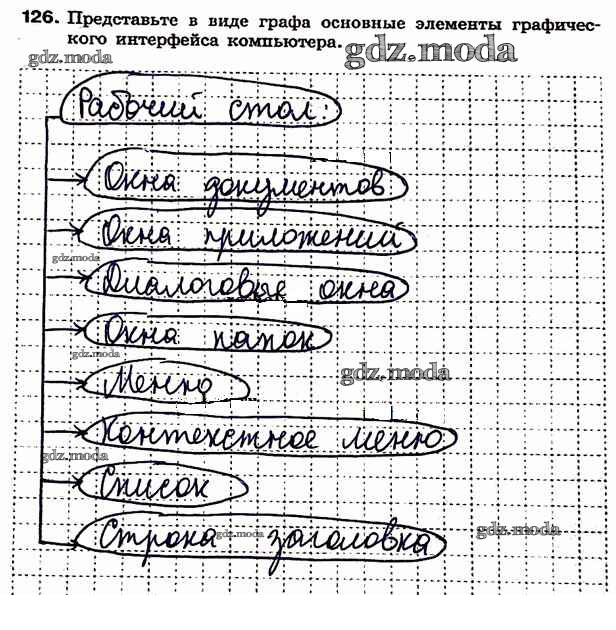 126. Представьте в виде графа основные элементы графичес-
кого интерфейса компьютера.
gdz.moda
gdz.moda
Рабочий стол.
Окна документов
Окна приложений
gdz.moda
Диалоговые окна
Окна папок
gdz.moda
gdz.moda
Меню
Контекстное меню
gdz.moda
Список
Строка заголовка
gdz.moda
gdz.moda